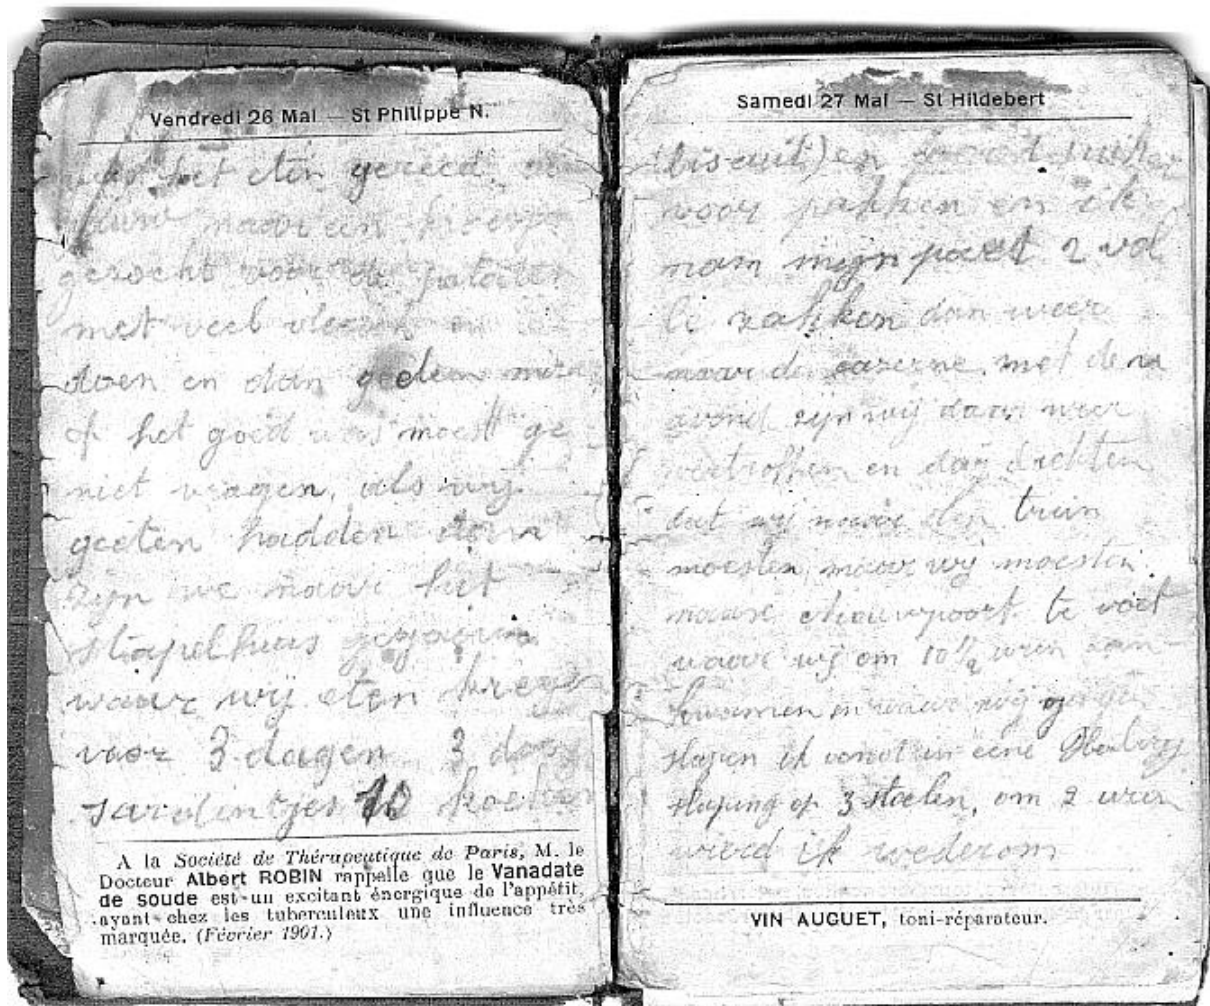 Vendredi 26 Mai — St Philippe N.
was het eten gereed
naar een
gezocht voor de patatten
met veel vleesch en
doen en dan
of het goed was moest ge
niet vragen, als wij
geeten hadden dan
zijn we naar het
stapelhuis gegaan
waar wij eten kregen
voor 3 dagen 3 doos
sardintjes 10 koeken
A la Société de Thérapeutique de Paris, M. le
Docteur Albert ROBIN rappelle que le Vanadate
de soude est un excitant énergique de l'appétit,
ayant chez les tuberculeux une influence très
marquée. (Février 1901.)
Samedi 27 Mai — St Hildebert
(biscuit) en
voor pakken en ik
nam mijn paret 2 vol
le zakken dan weer
naar de cazerne, met den
avond zijn wij daar weer
vertroffen en dachten
dat wij naar den train
moesten, maar wij moesten
naar Nieuwpoort te voet
waar wij om 10½ uren aan-
kwamen en waar wij
slapen ik vondt in eene
slaping op 3 stoelen, om 2 uren
wierd ik wederom
VIN AUGUET, toni-réparateur.